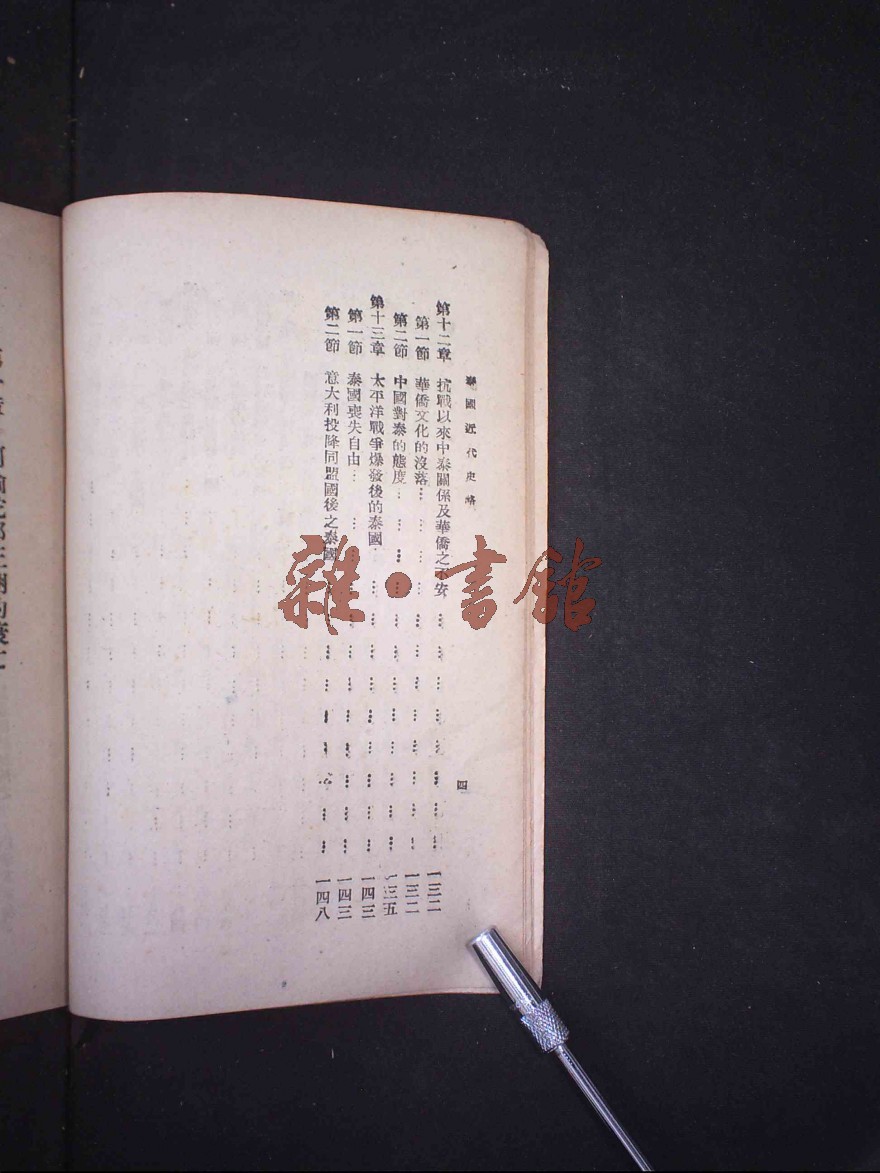 泰國近代史略
四
第十二章 抗戰以來中泰關係及華僑之不安 …………………… 一三二
第一節 華僑文化的沒落 …………………… 一三二
第二節 中國對泰的態度 …………………… 一三五
第十三章 太平洋戰爭爆發後的泰國 …………………… 一四三
第一節 泰國喪失自由 …………………… 一四三
第二節 意大利投降同盟國後之泰國 …………………… 一四八
雜·書館